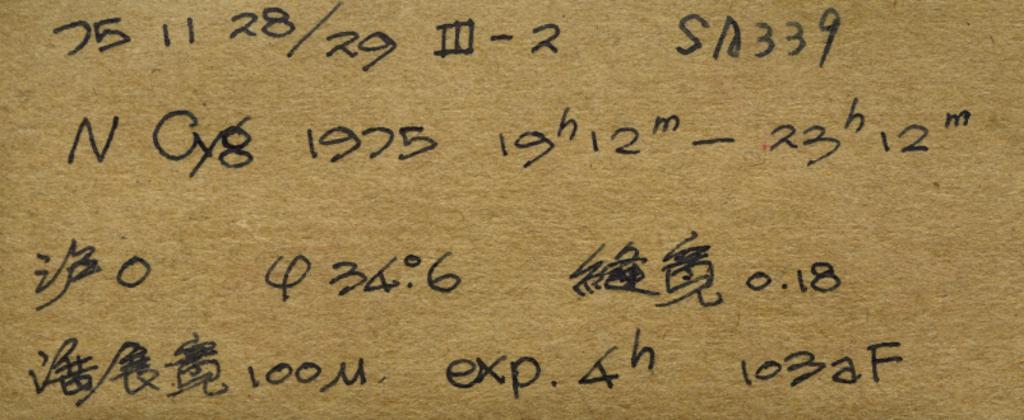 75 11 28/29 III-2 SA339
N Cyg 1975 19ʰ12ᵐ - 23ʰ12ᵐ
沪0 φ34°.6 縫寬 0.18
譜展寬 100μ. exp. 4ʰ 103aF